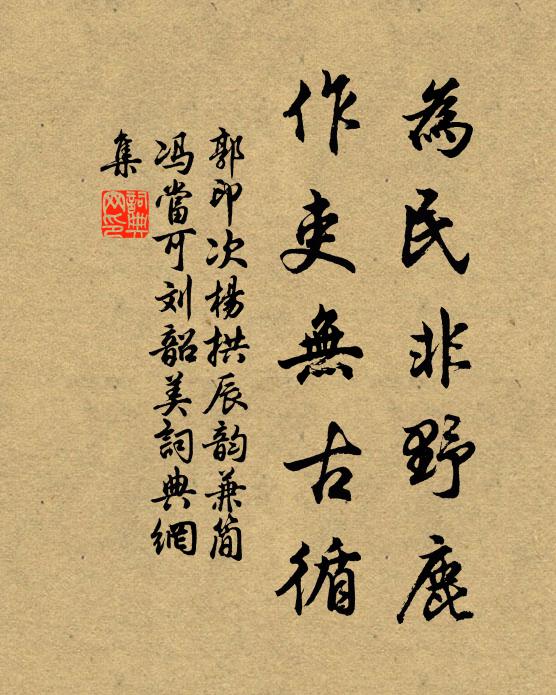 為民非野鹿
作吏無古循
郭印次楊拱辰韵兼簡
冯當可刘韶美詞典網
集
詞典
网印